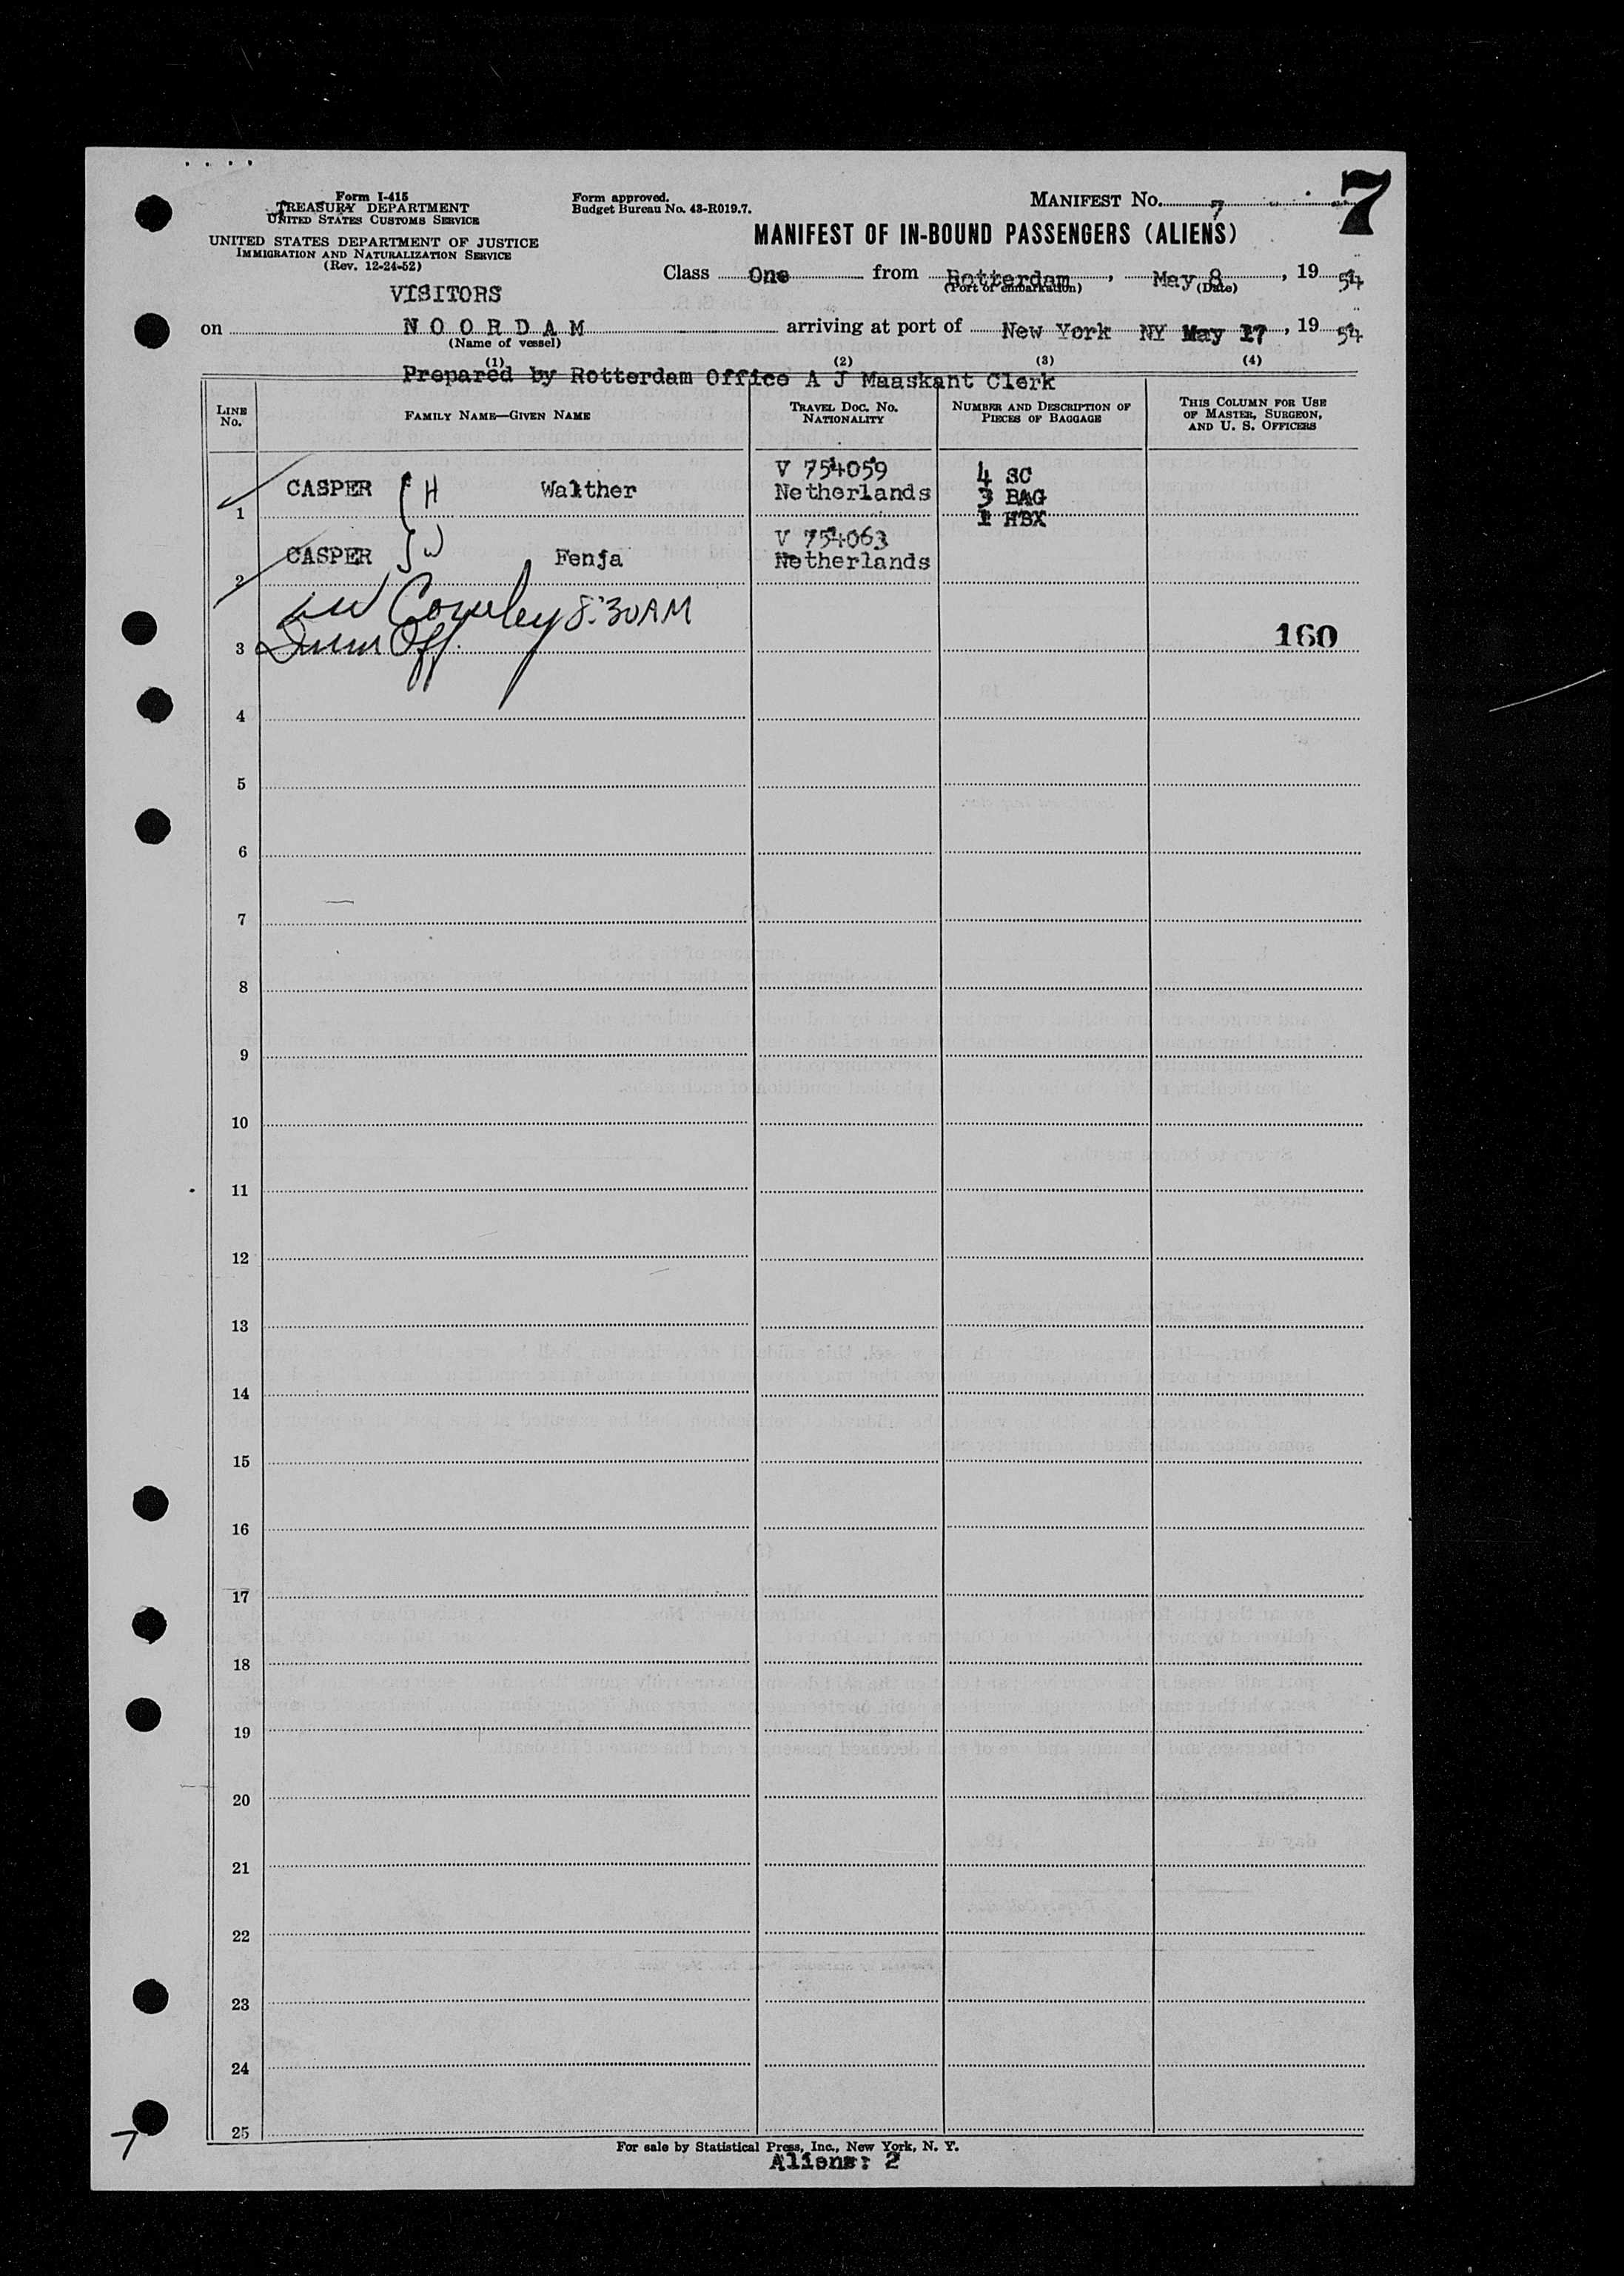 7
Form I-415
TREASURY DEPARTMENT
UNITED STATES CUSTOMS SERVICE
UNITED STATES DEPARTMENT OF JUSTICE
IMMIGRATION AND NATURALIZATION SERVICE
(Rev. 12-24-52)
Form approved.
Budget Bureau No. 43-R019.7.
MANIFEST No. 7
MANIFEST OF IN-BOUND PASSENGERS (ALIENS)
Class One from Rotterdam, May 8, 19 54
(Port of embarkation) (Date)
VISITORS
on NOORDAM arriving at port of New York NY May 17, 19 54
(Name of vessel)
(1) (2) (3) (4)
Prepared by Rotterdam Office A J Maaskant Clerk
LINE No.
FAMILY NAME—GIVEN NAME
TRAVEL DOC. No. NATIONALITY
NUMBER AND DESCRIPTION OF PIECES OF BAGGAGE
THIS COLUMN FOR USE OF MASTER, SURGEON, AND U. S. OFFICERS
V 754059 4 SC
CASPER H Walther Netherlands 3 BAG
1 1 HBX
V 754063
CASPER W Fenja Netherlands
2
Cowley 8:30AM
3 Imm Off. 160
4
5
6
7
8
9
10
11
12
13
14
15
16
17
18
19
20
21
22
23
24
25
For sale by Statistical Press, Inc., New York, N. Y.
Aliens: 2